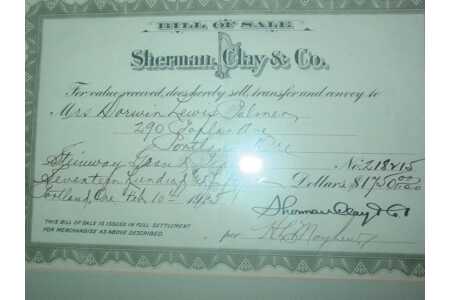 BILL OF SALE
Sherman, Clay & Co.
For value received, does hereby sell, transfer and convey to
Mrs Lewis Palmer
290
Ore
Steinway
No. 218215
Seventeen Hundred & Fifty Dollars $1750.00
Portland, Ore Feb 10th 1925
THIS BILL OF SALE IS ISSUED IN FULL SETTLEMENT
FOR MERCHANDISE AS ABOVE DESCRIBED.
Sherman Clay & Co
per